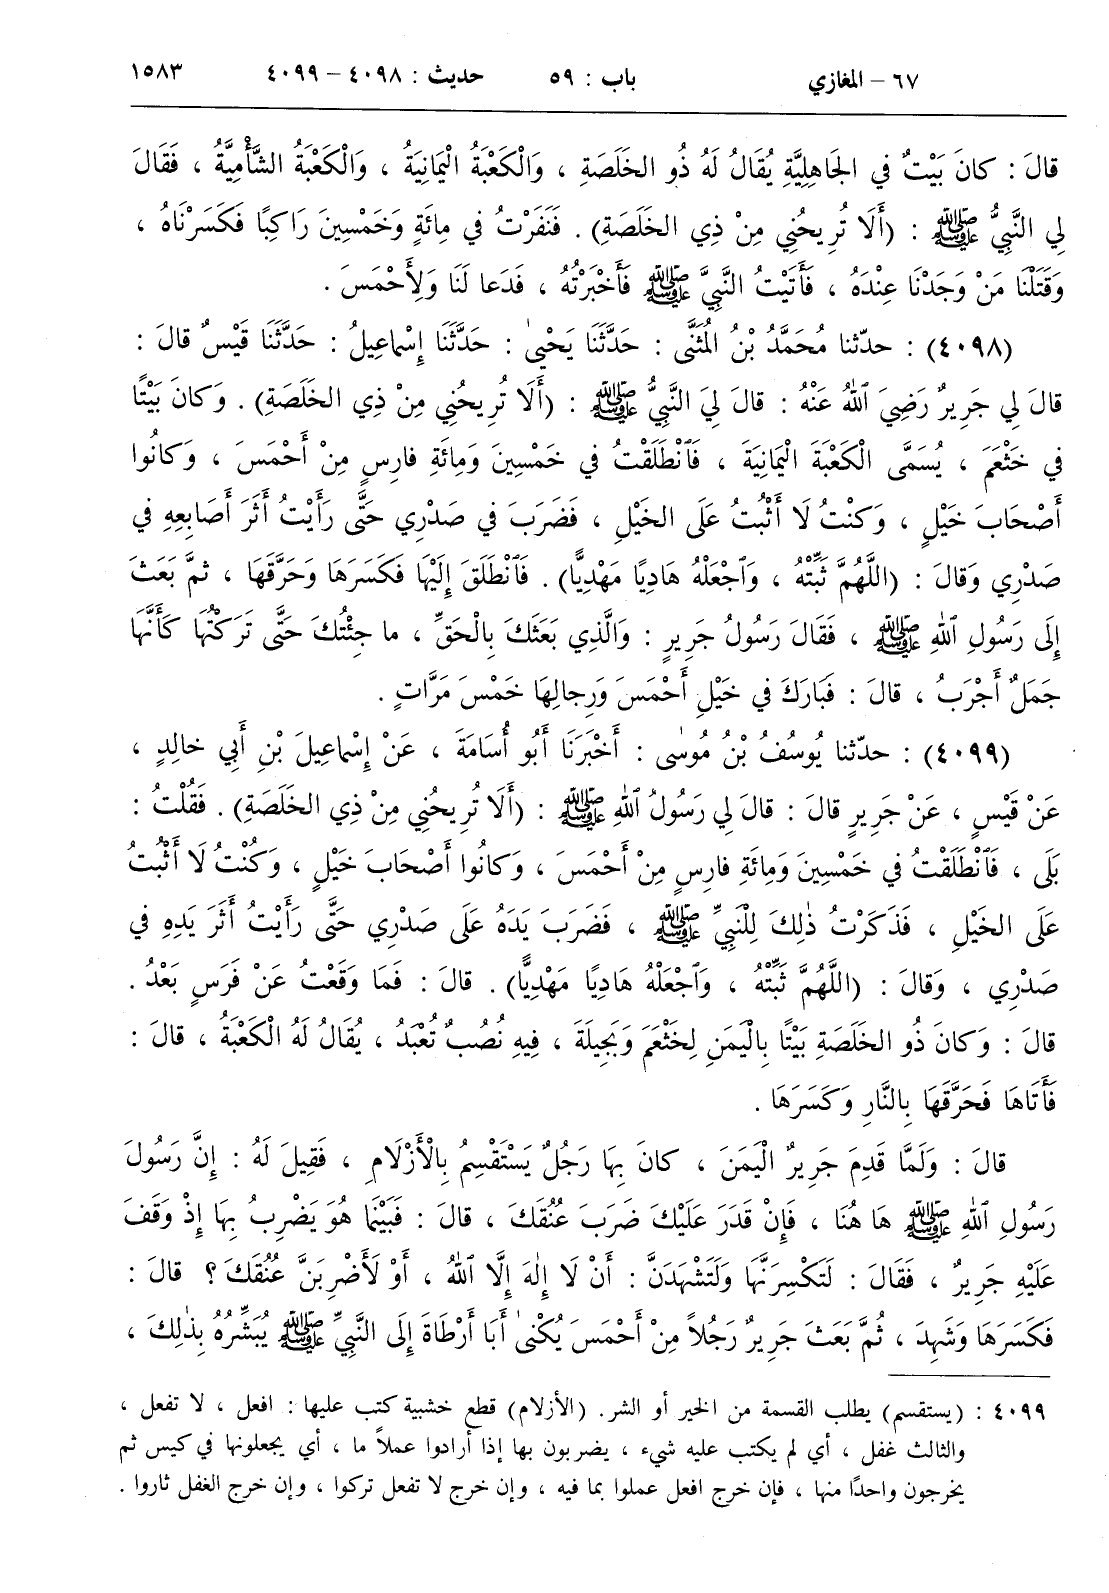 ٦٧ – المغازي باب : ٥٩ حديث : ٤٠٩٨ – ٤٠٩٩ ١٥٨٣
قالَ : كانَ بَيْتٌ في الجَاهِلِيَّةِ يُقَالُ لَهُ ذُو الخَلَصَةِ ، وَالْكَعْبَةُ الْيَمَانِيَةُ ، وَالْكَعْبَةُ الشَّأْمِيَّةُ ، فَقَالَ
لِي النَّبِيُّ ﷺ : (أَلَا تُرِيحُنِي مِنْ ذِي الخَلَصَةِ) . فَنَفَرْتُ في مِائَةٍ وَخَمْسِينَ رَاكِبًا فَكَسَرْنَاهُ ،
وَقَتَلْنَا مَنْ وَجَدْنَا عِنْدَهُ ، فَأَتَيْتُ النَّبِيَّ ﷺ فَأَخْبَرْتُهُ ، فَدَعا لَنَا وَلِأَحْمَسَ .
(٤٠٩٨) : حدّثنا مُحَمَّدُ بْنُ الْمُثَنَّى : حَدَّثَنَا يَحْيَىٰ : حَدَّثَنَا إِسْمَاعِيلُ : حَدَّثَنَا قَيْسٌ قالَ :
قالَ لِي جَرِيرٌ رَضِيَ ٱللهُ عَنْهُ : قالَ لِيَ النَّبِيُّ ﷺ : (أَلَا تُرِيحُنِي مِنْ ذِي الخَلَصَةِ) . وَكانَ بَيْتًا
في خَثْعَمَ ، يُسَمَّى الْكَعْبَةَ الْيَمَانِيَةَ ، فَٱنْطَلَقْتُ في خَمْسِينَ وَمِائَةِ فارِسٍ مِنْ أَحْمَسَ ، وَكانُوا
أَصْحَابَ خَيْلٍ ، وَكُنْتُ لَا أَثْبُتُ عَلَى الخَيْلِ ، فَضَرَبَ في صَدْرِي حَتَّى رَأَيْتُ أَثَرَ أَصَابِعِهِ في
صَدْرِي وَقالَ : (اللَّهُمَّ ثَبِّتْهُ ، وَٱجْعَلْهُ هَادِيًا مَهْدِيًّا) . فَٱنْطَلَقَ إِلَيْهَا فَكَسَرَهَا وَحَرَّقَهَا ، ثمَّ بَعَثَ
إِلَى رَسُولِ ٱللهِ ﷺ ، فَقَالَ رَسُولُ جَرِيرٍ : وَالَّذِي بَعَثَكَ بِالْحَقِّ ، ما جِئْتُكَ حَتَّى تَرَكْتُهَا كَأَنَّهَا
جَمَلٌ أَجْرَبُ ، قالَ : فَبَارَكَ في خَيْلِ أَحْمَسَ وَرِجالِهَا خَمْسَ مَرَّاتٍ .
(٤٠٩٩) : حدّثنا يُوسُفُ بْنُ مُوسٰى : أَخْبَرَنَا أَبُو أُسَامَةَ ، عَنْ إِسْمَاعِيلَ بْنِ أَبِي خالِدٍ ،
عَنْ قَيْسٍ ، عَنْ جَرِيرٍ قالَ : قالَ لِي رَسُولُ ٱللهِ ﷺ : (أَلَا تُرِيحُنِي مِنْ ذِي الخَلَصَةِ) . فَقُلْتُ :
بَلَى ، فَٱنْطَلَقْتُ في خَمْسِينَ وَمِائَةِ فارِسٍ مِنْ أَحْمَسَ ، وَكانُوا أَصْحَابَ خَيْلٍ ، وَكُنْتُ لَا أَثْبُتُ
عَلَى الخَيْلِ ، فَذَكَرْتُ ذٰلِكَ لِلنَّبِيِّ ﷺ ، فَضَرَبَ يَدَهُ عَلَى صَدْرِي حَتَّى رَأَيْتُ أَثَرَ يَدِهِ في
صَدْرِي ، وَقالَ : (اللَّهُمَّ ثَبِّتْهُ ، وَٱجْعَلْهُ هَادِيًا مَهْدِيًّا) . قالَ : فَمَا وَقَعْتُ عَنْ فَرَسٍ بَعْدُ .
قالَ : وَكانَ ذُو الخَلَصَةِ بَيْتًا بِالْيَمَنِ لِخَثْعَمَ وَبَجِيلَةَ ، فِيهِ نُصُبٌ تُعْبَدُ ، يُقَالُ لَهُ الْكَعْبَةُ ، قالَ :
فَأَتَاهَا فَحَرَّقَهَا بِالنَّارِ وَكَسَرَهَا .
قالَ : وَلَمَّا قَدِمَ جَرِيرٌ الْيَمَنَ ، كانَ بِهَا رَجُلٌ يَسْتَقْسِمُ بِالْأَزْلَامِ ، فَقِيلَ لَهُ : إِنَّ رَسُولَ
رَسُولِ ٱللهِ ﷺ هَا هُنَا ، فَإِنْ قَدَرَ عَلَيْكَ ضَرَبَ عُنُقَكَ ، قالَ : فَبَيْنَما هُوَ يَضْرِبُ بِهَا إِذْ وَقَفَ
عَلَيْهِ جَرِيرٌ ، فَقَالَ : لَتَكْسِرَنَّهَا وَلَتَشْهَدَنَّ : أَنْ لَا إِلٰهَ إِلَّا ٱللهُ ، أَوْ لَأَضْرِبَنَّ عُنُقَكَ ؟ قالَ :
فَكَسَرَهَا وَشَهِدَ ، ثُمَّ بَعَثَ جَرِيرٌ رَجُلاً مِنْ أَحْمَسَ يُكْنىٰ أَبَا أَرْطَاةَ إِلَى النَّبِيِّ ﷺ يُبَشِّرُهُ بِذٰلِكَ ،
٤٠٩٩ : (يستقسم) يطلب القسمة من الخير أو الشر. (الأزلام) قطع خشبية كتب عليها : افعل ، لا تفعل ،
والثالث غفل ، أي لم يكتب عليه شيء ، يضربون بها إذا أرادوا عملاً ما ، أي يجعلونها في كيس ثم
يخرجون واحدًا منها ، فإن خرج افعل عملوا بما فيه ، وإن خرج لا تفعل تركوا ، وإن خرج الغفل ثاروا .